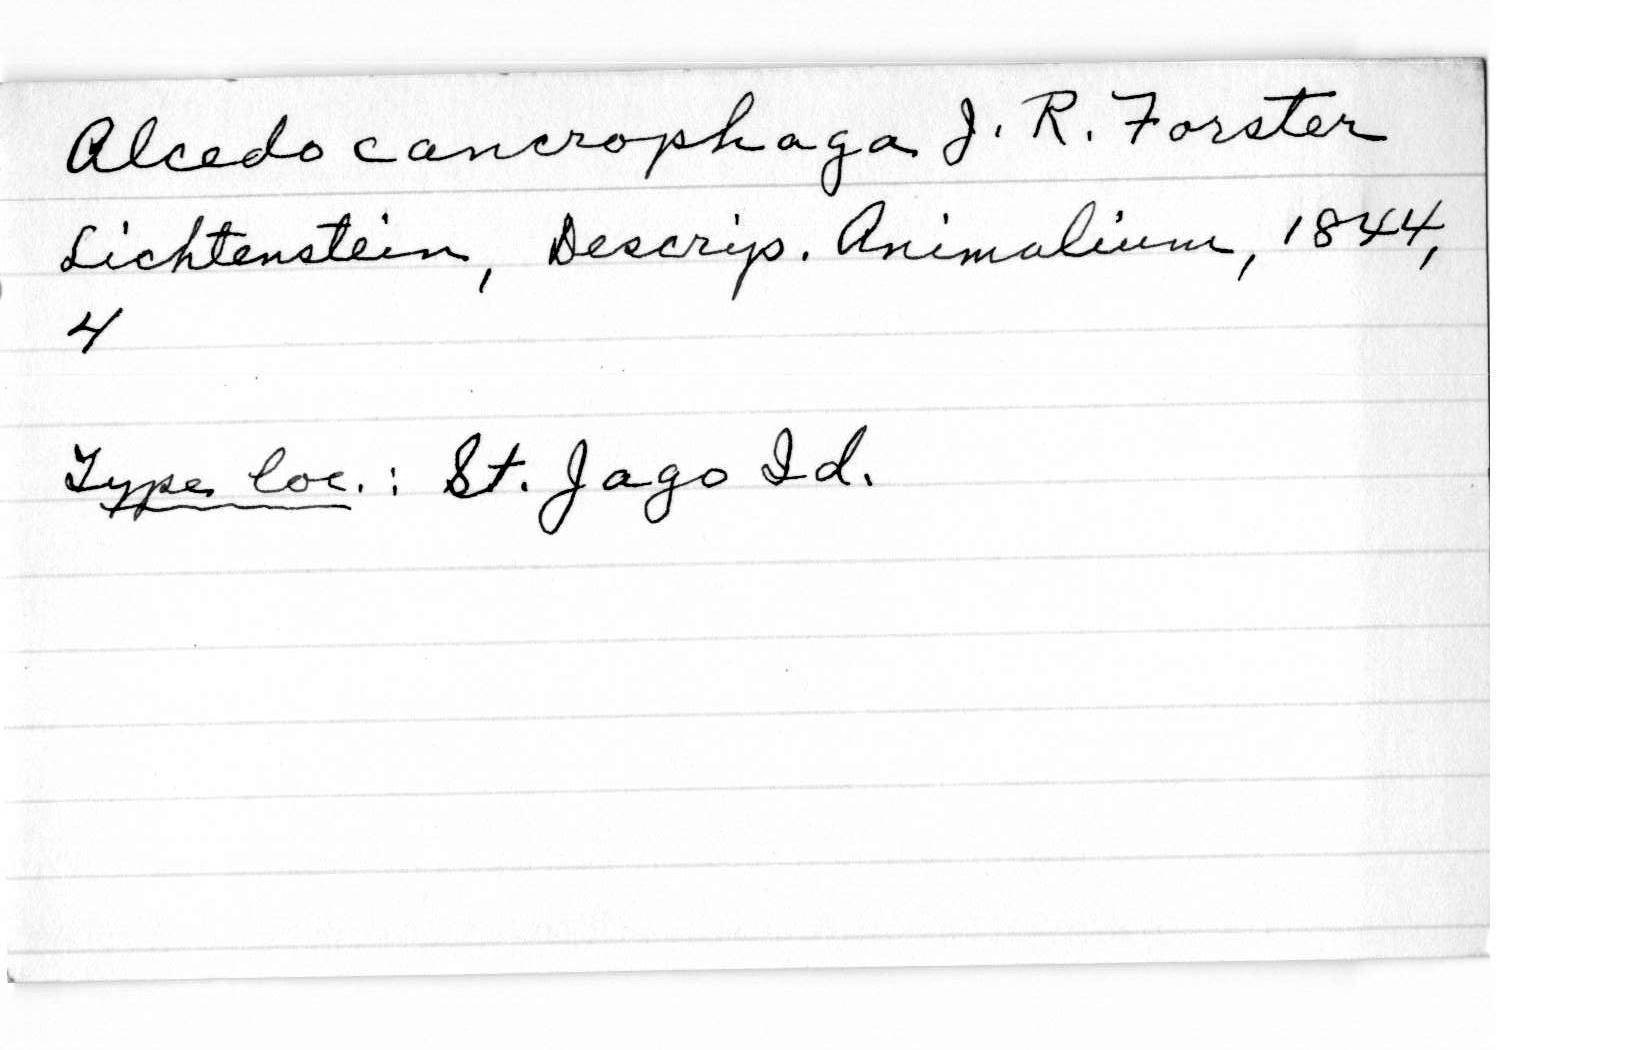 Alcedo cancrophaga J. R. Forster
Lichtenstein, Descrip. Animalium, 1844,
4
Type loc.: St. Jago Id.